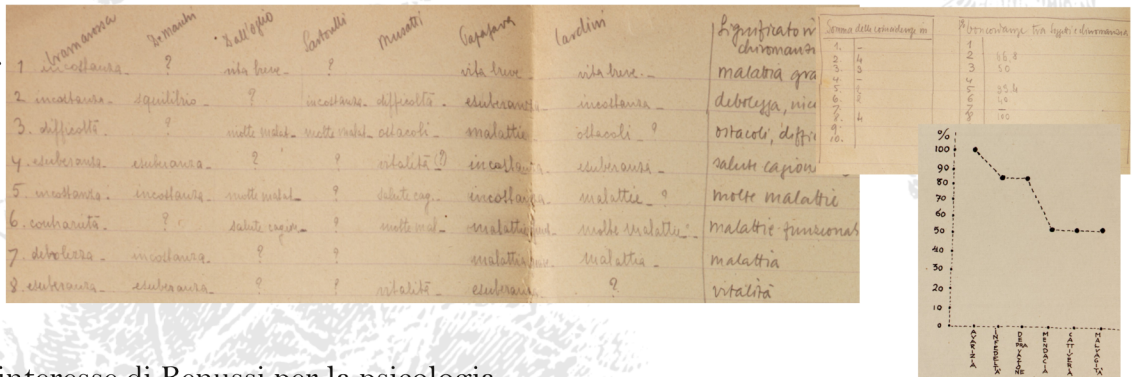 Gramarossa Demarchi Dall'oglio Musatti Papafava Cardini Significato chiromanz
1 incostanza ? vita breve ? vita breve vita breve malattia gra
2 incostanza squilibrio ? incostanza difficoltà esuberanza incostanza debolezza
3. difficoltà ? molte malat. molte malat. ostacoli malattie ostacoli ? ostacoli, diffi
4. esuberanza esuberanza ? ? vitalità (?) incostanza esuberanza salute cagion
5 incostanza incostanza molte malat ? salute cag. incostanza malattie ? molte malattie
6. ? salute cagion ? molte mal malattie molte malattie malattie funzional
7. debolezza incostanza ? ? malattia malattia malattia
8. esuberanza esuberanza ? ? vitalità esuberanza ? vitalità
Somma delle coincidenze in
1. -
2. 4
3. 3
4. -
5.
6. 2
7. -
8. 4
9.
10.
Concordanze tra
1
2
3 50
4 -
5
6 40
7 -
8 100
%
100
90
80
70
60
50
40
30
20
10
0
AVARIZIA
INFEDELTÀ
DEPRAVAZIONE
MENDACIA
CATTIVERIA
MALVAGITÀ
interesse di Benussi per la psicologia